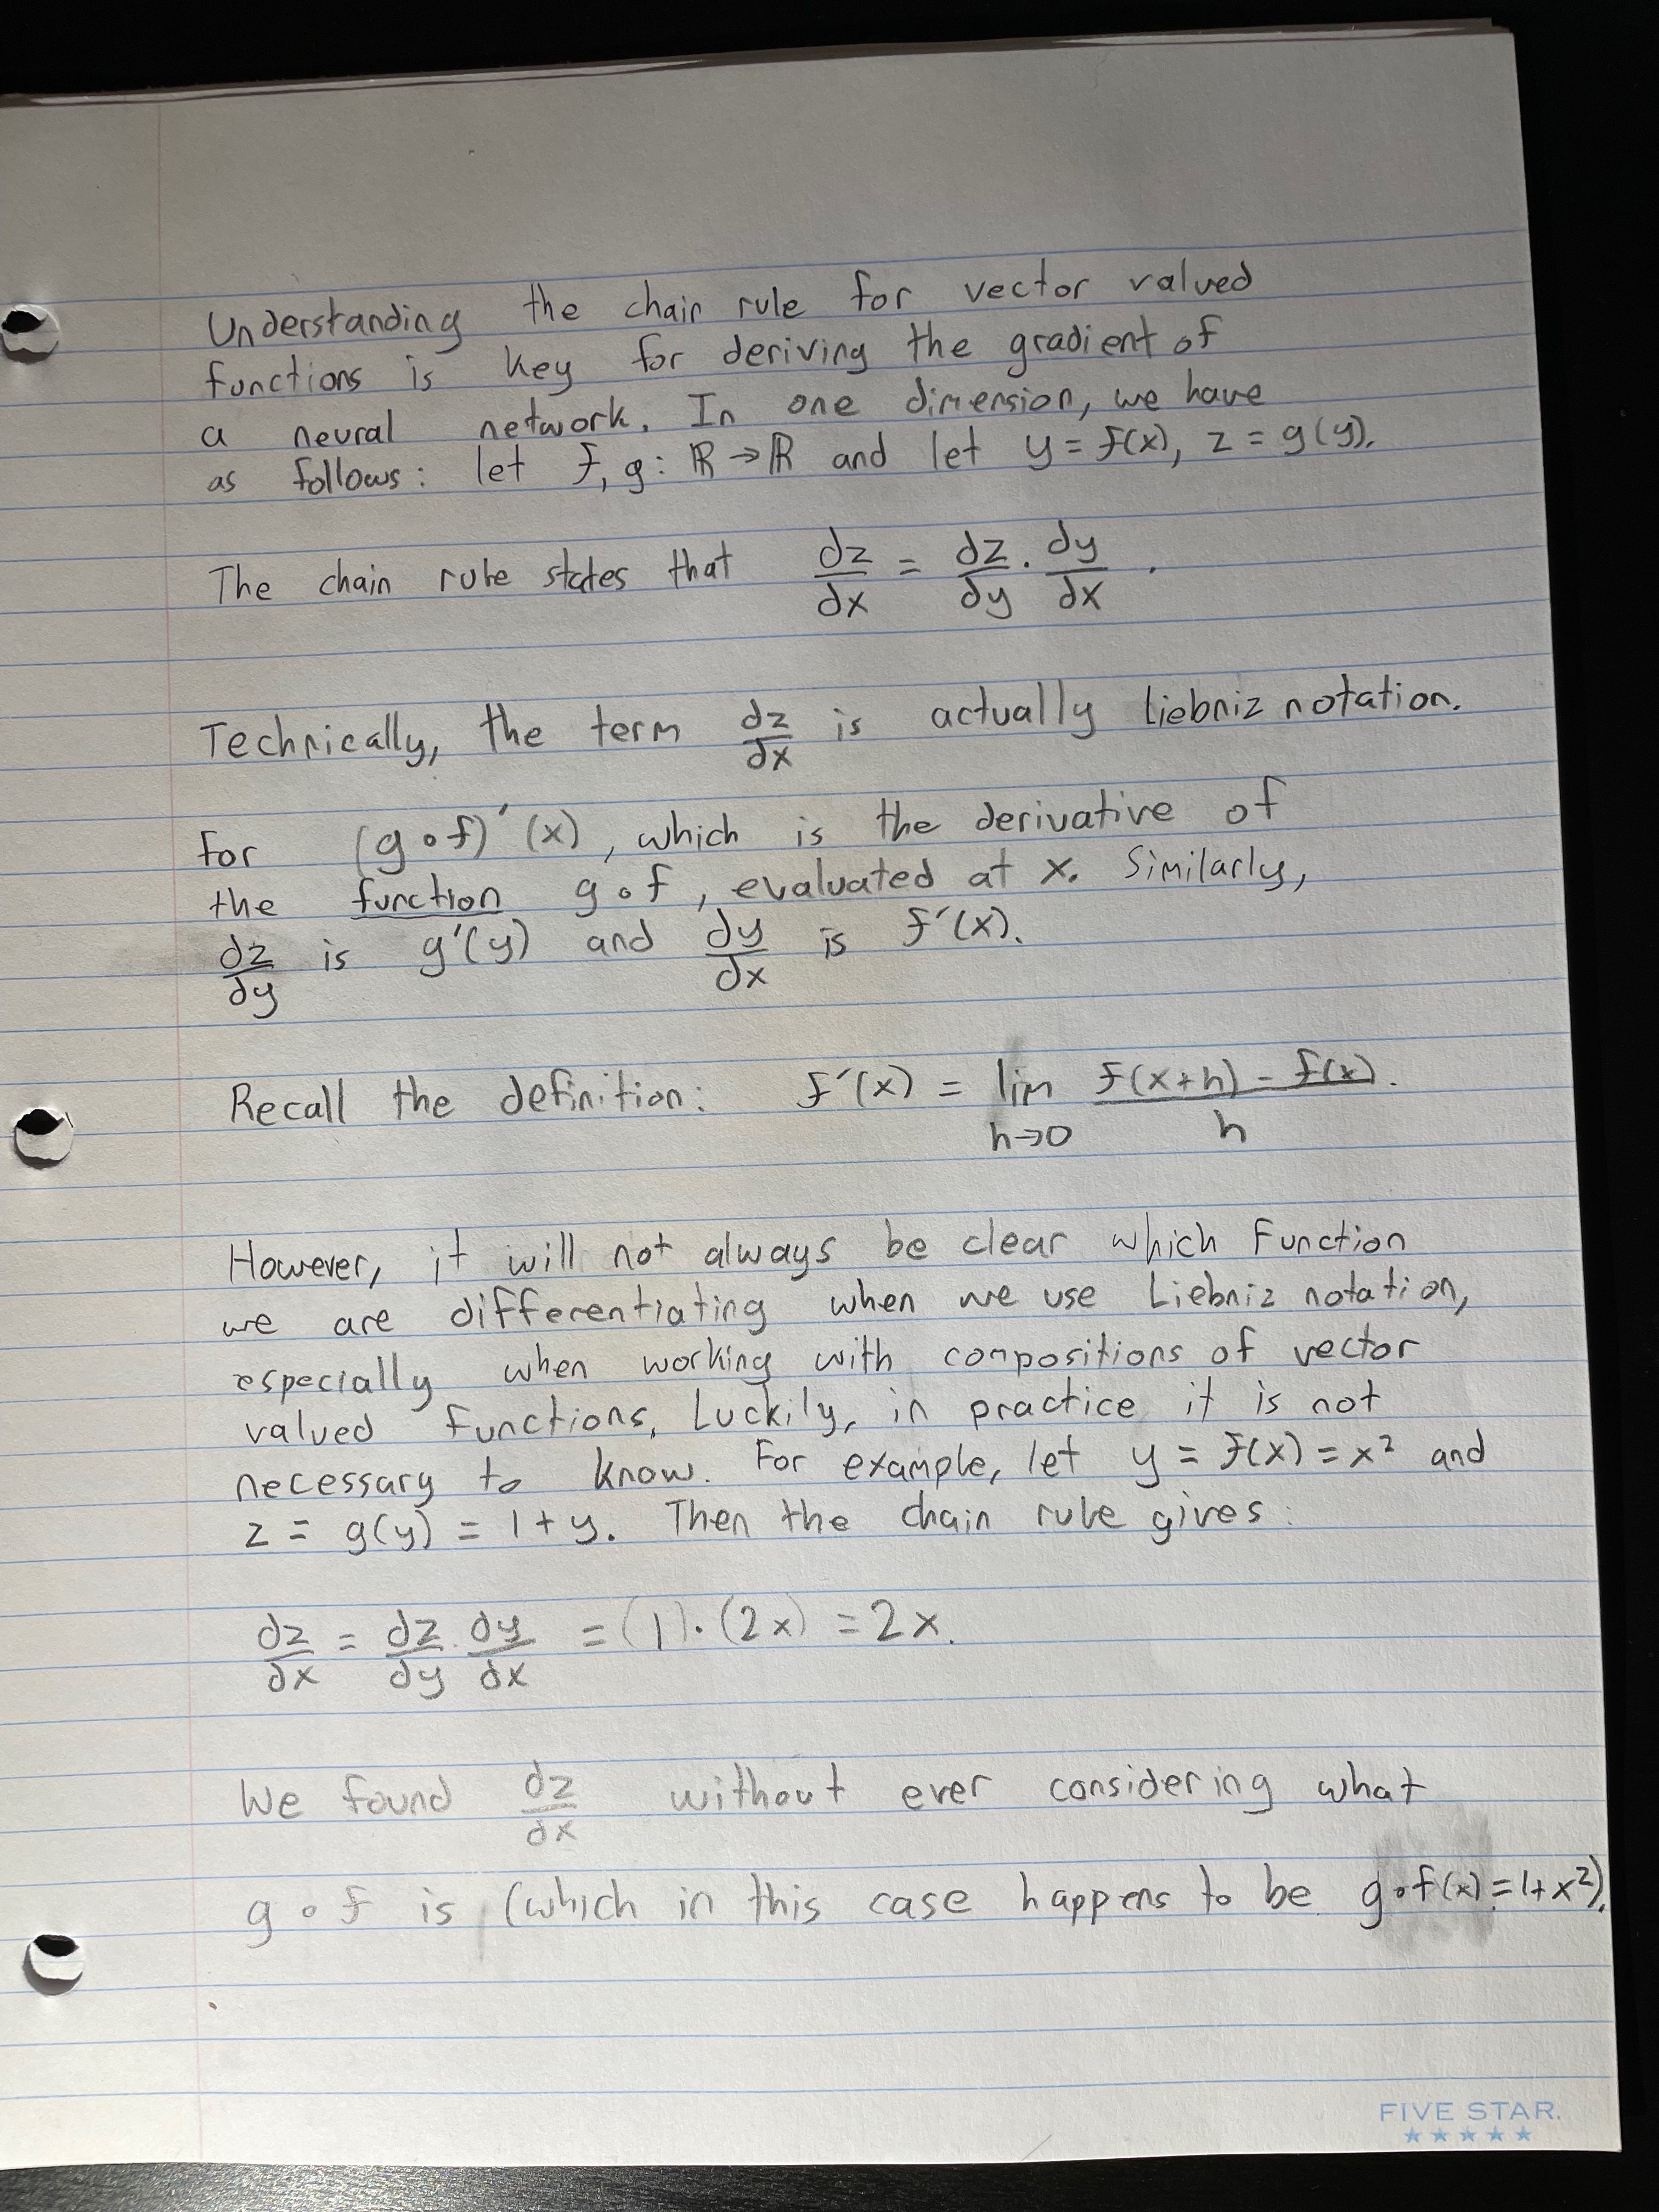 Understanding the chain rule for vector valued
functions is key for deriving the gradient of
a neural network. In one dimension, we have
as follows: let f, g: ℝ → ℝ and let y = f(x), z = g(y).
The chain rule states that dz/dx = dz/dy · dy/dx.
Technically, the term dz/dx is actually Liebniz notation.
for (g∘f)′(x), which is the derivative of
the function g∘f, evaluated at x. Similarly,
dz/dy is g′(y) and dy/dx is f′(x).
Recall the definition: f′(x) = lim h→0 (f(x+h) - f(x))/h.
However, it will not always be clear which function
we are differentiating when we use Liebniz notation,
especially when working with compositions of vector
valued functions. Luckily, in practice it is not
necessary to know. For example, let y = f(x) = x² and
z = g(y) = 1 + y. Then the chain rule gives:
dz/dx = dz/dy · dy/dx = (1)·(2x) = 2x.
We found dz/dx without ever considering what
g∘f is (which in this case happens to be g∘f(x) = 1+x²).
FIVE STAR.